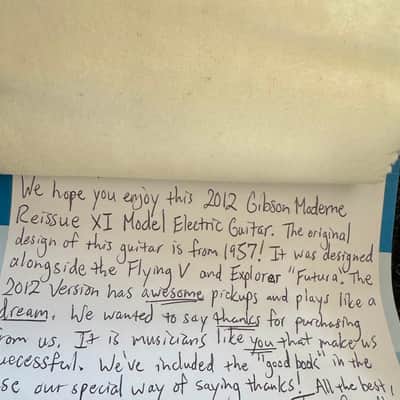 We hope you enjoy this 2012 Gibson Moderne
Reissue XI Model Electric Guitar. The original
design of this guitar is from 1957! It was designed
alongside the Flying V and Explorer "Futura. The
2012 Version has awesome pickups and plays like a
dream. We wanted to say thanks for purchasing
from us. It is musicians like you that make us
uccessful. We've included the "good book" in the
se our special way of saying thanks! All the best,